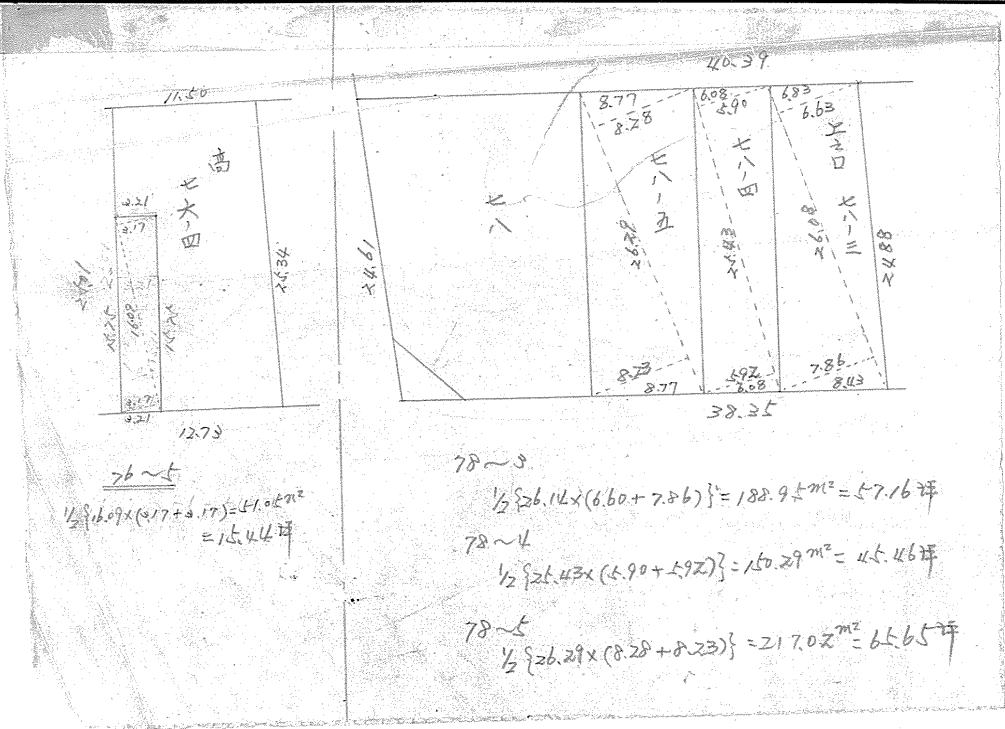 11.50
高
七六-四
3.21
3.17
15.25
16.09
15.25
25.34
3.17
3.21
12.73
76～5
1/2{16.09×(3.17+3.17)=51.05m²
=15.44坪
40.39
8.77
8.28
6.08
5.90
6.83
6.63
上ノ口
七八-三
七八-四
七八-五
七八
24.61
26.29
25.43
24.88
8.23
8.77
5.92
6.08
7.86
8.43
38.35
78～3
1/2{26.14×(6.60+7.86)}=188.95m²=57.16坪
78～4
1/2{25.43×(5.90+5.92)}=150.29m²=45.46坪
78～5
1/2{26.29×(8.28+8.23)}=217.02m²=65.65坪